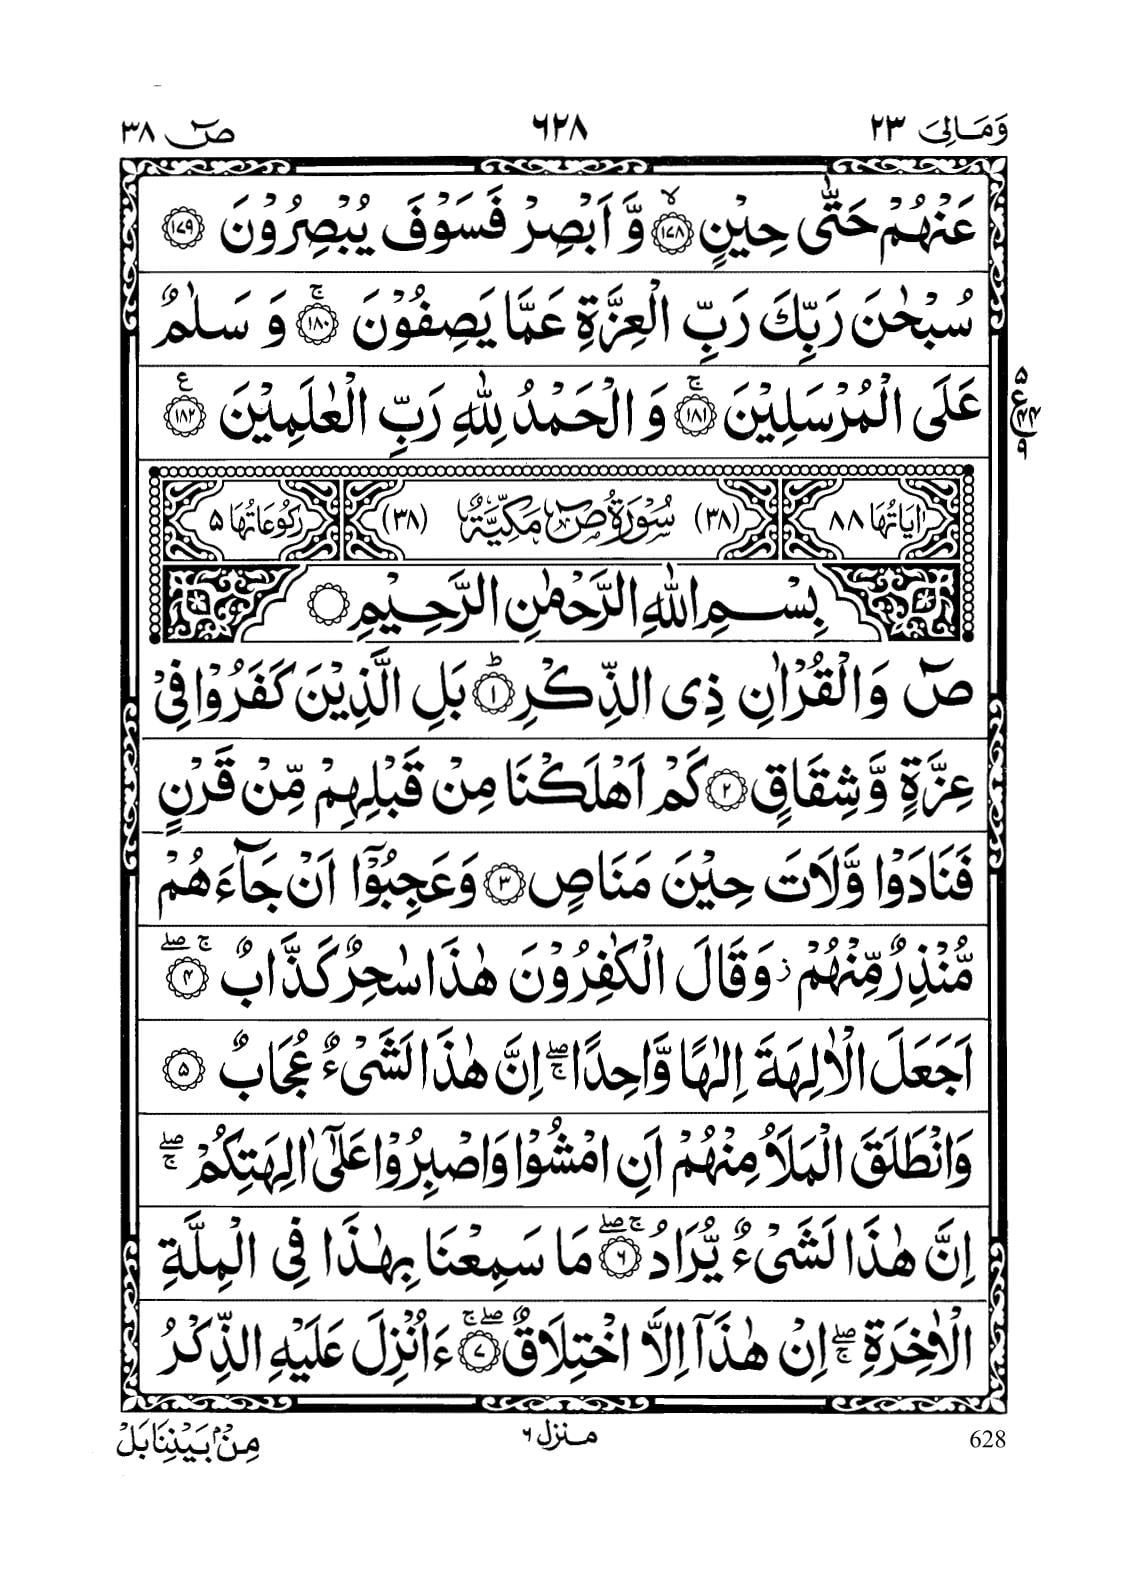 وَمَالِیَ ٢٣
٦٢٨
صٓ ٣٨
عَنْهُمْ حَتّٰى حِيْنٍ ۙ﴿١٧٨﴾ وَّ اَبْصِرْ فَسَوْفَ يُبْصِرُوْنَ ﴿١٧٩﴾
سُبْحٰنَ رَبِّكَ رَبِّ الْعِزَّةِ عَمَّا يَصِفُوْنَ ۚ﴿١٨٠﴾ وَ سَلٰمٌ
عَلَى الْمُرْسَلِيْنَ ۚ﴿١٨١﴾ وَ الْحَمْدُ لِلّٰهِ رَبِّ الْعٰلَمِيْنَ ﴿١٨٢﴾ ع
٥
ع
٩
اٰيَاتُهَا ٨٨
(٣٨) سُوْرَةُ صٓ مَكِّيَّةٌ (٣٨)
رُكُوْعَاتُهَا ٥
بِسْمِ اللّٰهِ الرَّحْمٰنِ الرَّحِيْمِ
صٓ وَالْقُرْاٰنِ ذِى الذِّكْرِ ؕ﴿١﴾ بَلِ الَّذِيْنَ كَفَرُوْا فِىْ
عِزَّةٍ وَّشِقَاقٍ ﴿٢﴾ كَمْ اَهْلَكْنَا مِنْ قَبْلِهِمْ مِّنْ قَرْنٍ
فَنَادَوْا وَّلَاتَ حِيْنَ مَنَاصٍ ﴿٣﴾ وَعَجِبُوْۤا اَنْ جَآءَهُمْ
مُّنْذِرٌ مِّنْهُمْ ز وَقَالَ الْكٰفِرُوْنَ هٰذَا سٰحِرٌ كَذَّابٌ ۚۖ﴿٤﴾
اَجَعَلَ الْاٰلِهَةَ اِلٰهًا وَّاحِدًا ۚۖ اِنَّ هٰذَا لَشَىْءٌ عُجَابٌ ﴿٥﴾
وَانْطَلَقَ الْمَلَاُ مِنْهُمْ اَنِ امْشُوْا وَاصْبِرُوْا عَلٰٓى اٰلِهَتِكُمْ ۚۖ
اِنَّ هٰذَا لَشَىْءٌ يُّرَادُ ۚۖ﴿٦﴾ مَا سَمِعْنَا بِهٰذَا فِى الْمِلَّةِ
الْاٰخِرَةِ ۚۖ اِنْ هٰذَاۤ اِلَّا اخْتِلَاقٌ ۚۖ﴿٧﴾ ءَاُنْزِلَ عَلَيْهِ الذِّكْرُ
628
منزل ٦
مِنْۢ بَيْنِنَا بَلْ